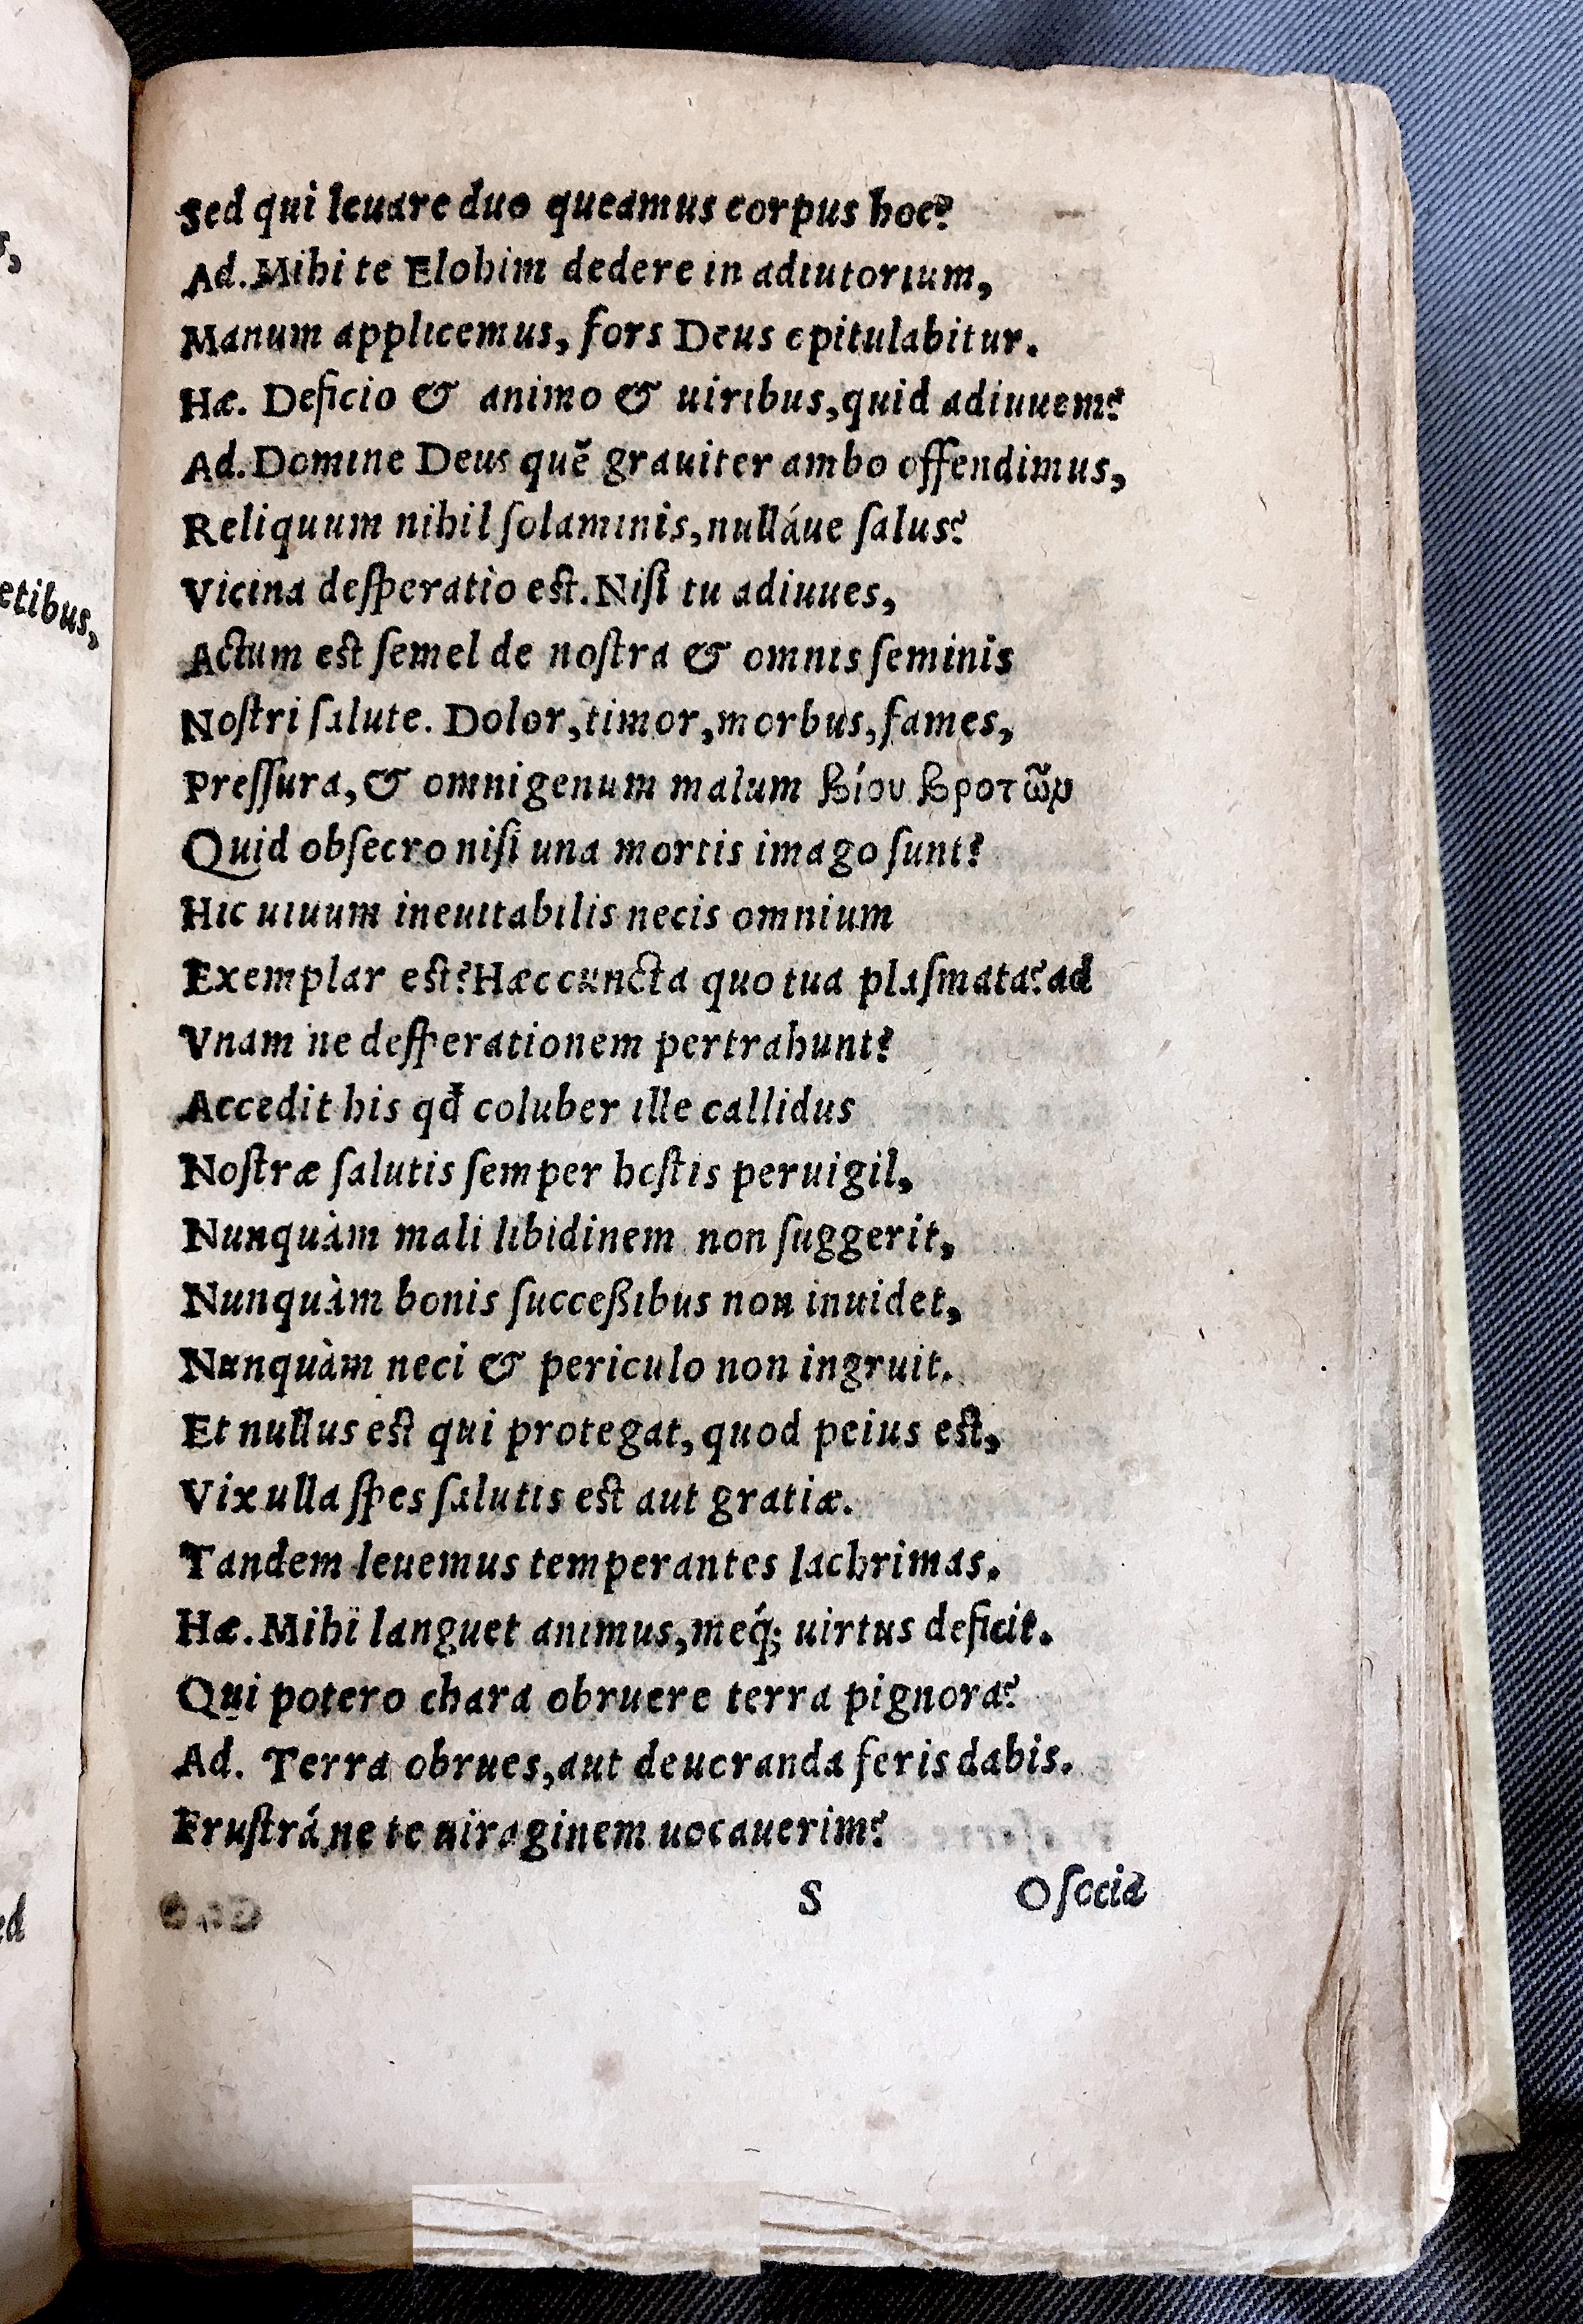 s,
etibus,
ed
Sed qui leuare duo queamus corpus hoc?
Ad. Mihi te Elohim dedere in adiutorium,
Manum applicemus, fors Deus opitulabitur.
Hæ. Deficio & animo & uiribus, quid adiuuem?
Ad. Domine Deus quē grauiter ambo offendimus,
Reliquum nihil ſolaminis, nulláue ſalus?
Vicina deſperatio est. Niſi tu adiuues,
Actum est ſemel de noſtra & omnis ſeminis
Noſtri ſalute. Dolor, timor, morbus, fames,
Preſſura, & omnigenum malum βίου βροτῶν
Quid obſecro niſi una mortis imago ſunt?
Hic uiuum ineuitabilis necis omnium
Exemplar est? Hæc cuncta quo tua plaſmata? ad
Vnam ne deſperationem pertrahunt?
Accedit his qđ coluber ille callidus
Noſtræ ſalutis ſemper hoſtis peruigil,
Nunquàm mali libidinem non ſuggerit,
Nunquàm bonis ſucceßibus non inuidet,
Nunquàm neci & periculo non ingruit.
Et nullus est qui protegat, quod peius est,
Vix ulla ſpes ſalutis est aut gratiæ.
Tandem leuemus temperantes lachrimas.
Hæ. Mihi languet animus, meq́; uirtus deficit.
Qui potero chara obruere terra pignora?
Ad. Terra obrues, aut deuoranda feris dabis.
Fruſtrá ne te uiraginem uocauerim?
S O ſocia